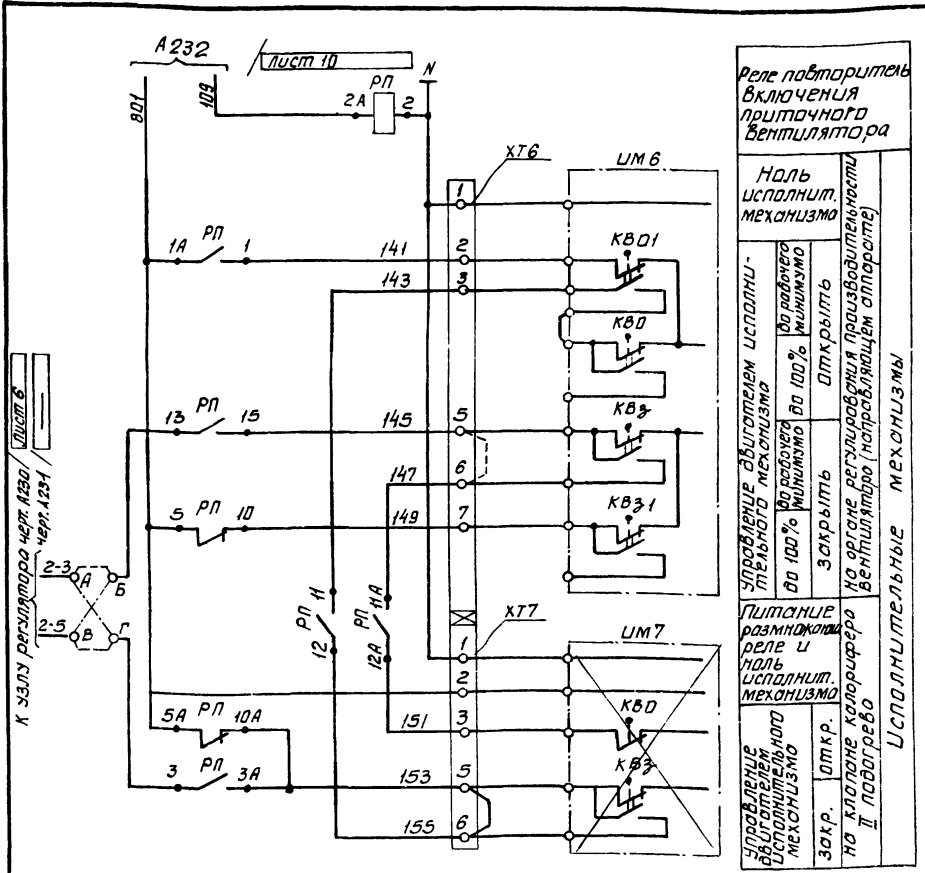 А232
Лист 10
801
109
2А
РП
2
N
ХТ6
ИМ6
1
1А
РП
1
141
2
КВО1
143
3
КВО
13
РП
15
145
5
КВЗ
147
6
5
10
РП
149
7
КВЗ1
К узлу регулятора черт. А230/
Лист 6
черт. А231/
2-3
А
Б
2-5
В
Г
РП
11
12
РП
11А
12А
ХТ7
ИМ7
1
2
5А
РП
10А
151
3
КВО
3
РП
3А
153
5
КВЗ
155
6
Реле повторитель
включения
приточного
вентилятора
Ноль
исполнит.
механизма
Управление двигателем исполни-
тельного механизма
до рабочего
минимума
до 100%
Открыть
до рабочего
минимума
до 100%
Закрыть
на органе регулирования производительности
вентилятора (направляющем аппарате)
Питание
размножения
реле и
ноль
исполнит.
механизма
Управление
двигателем
исполнительного
механизма
откр.
закр.
на клапане калорифера
II подогрева
Исполнительные механизмы